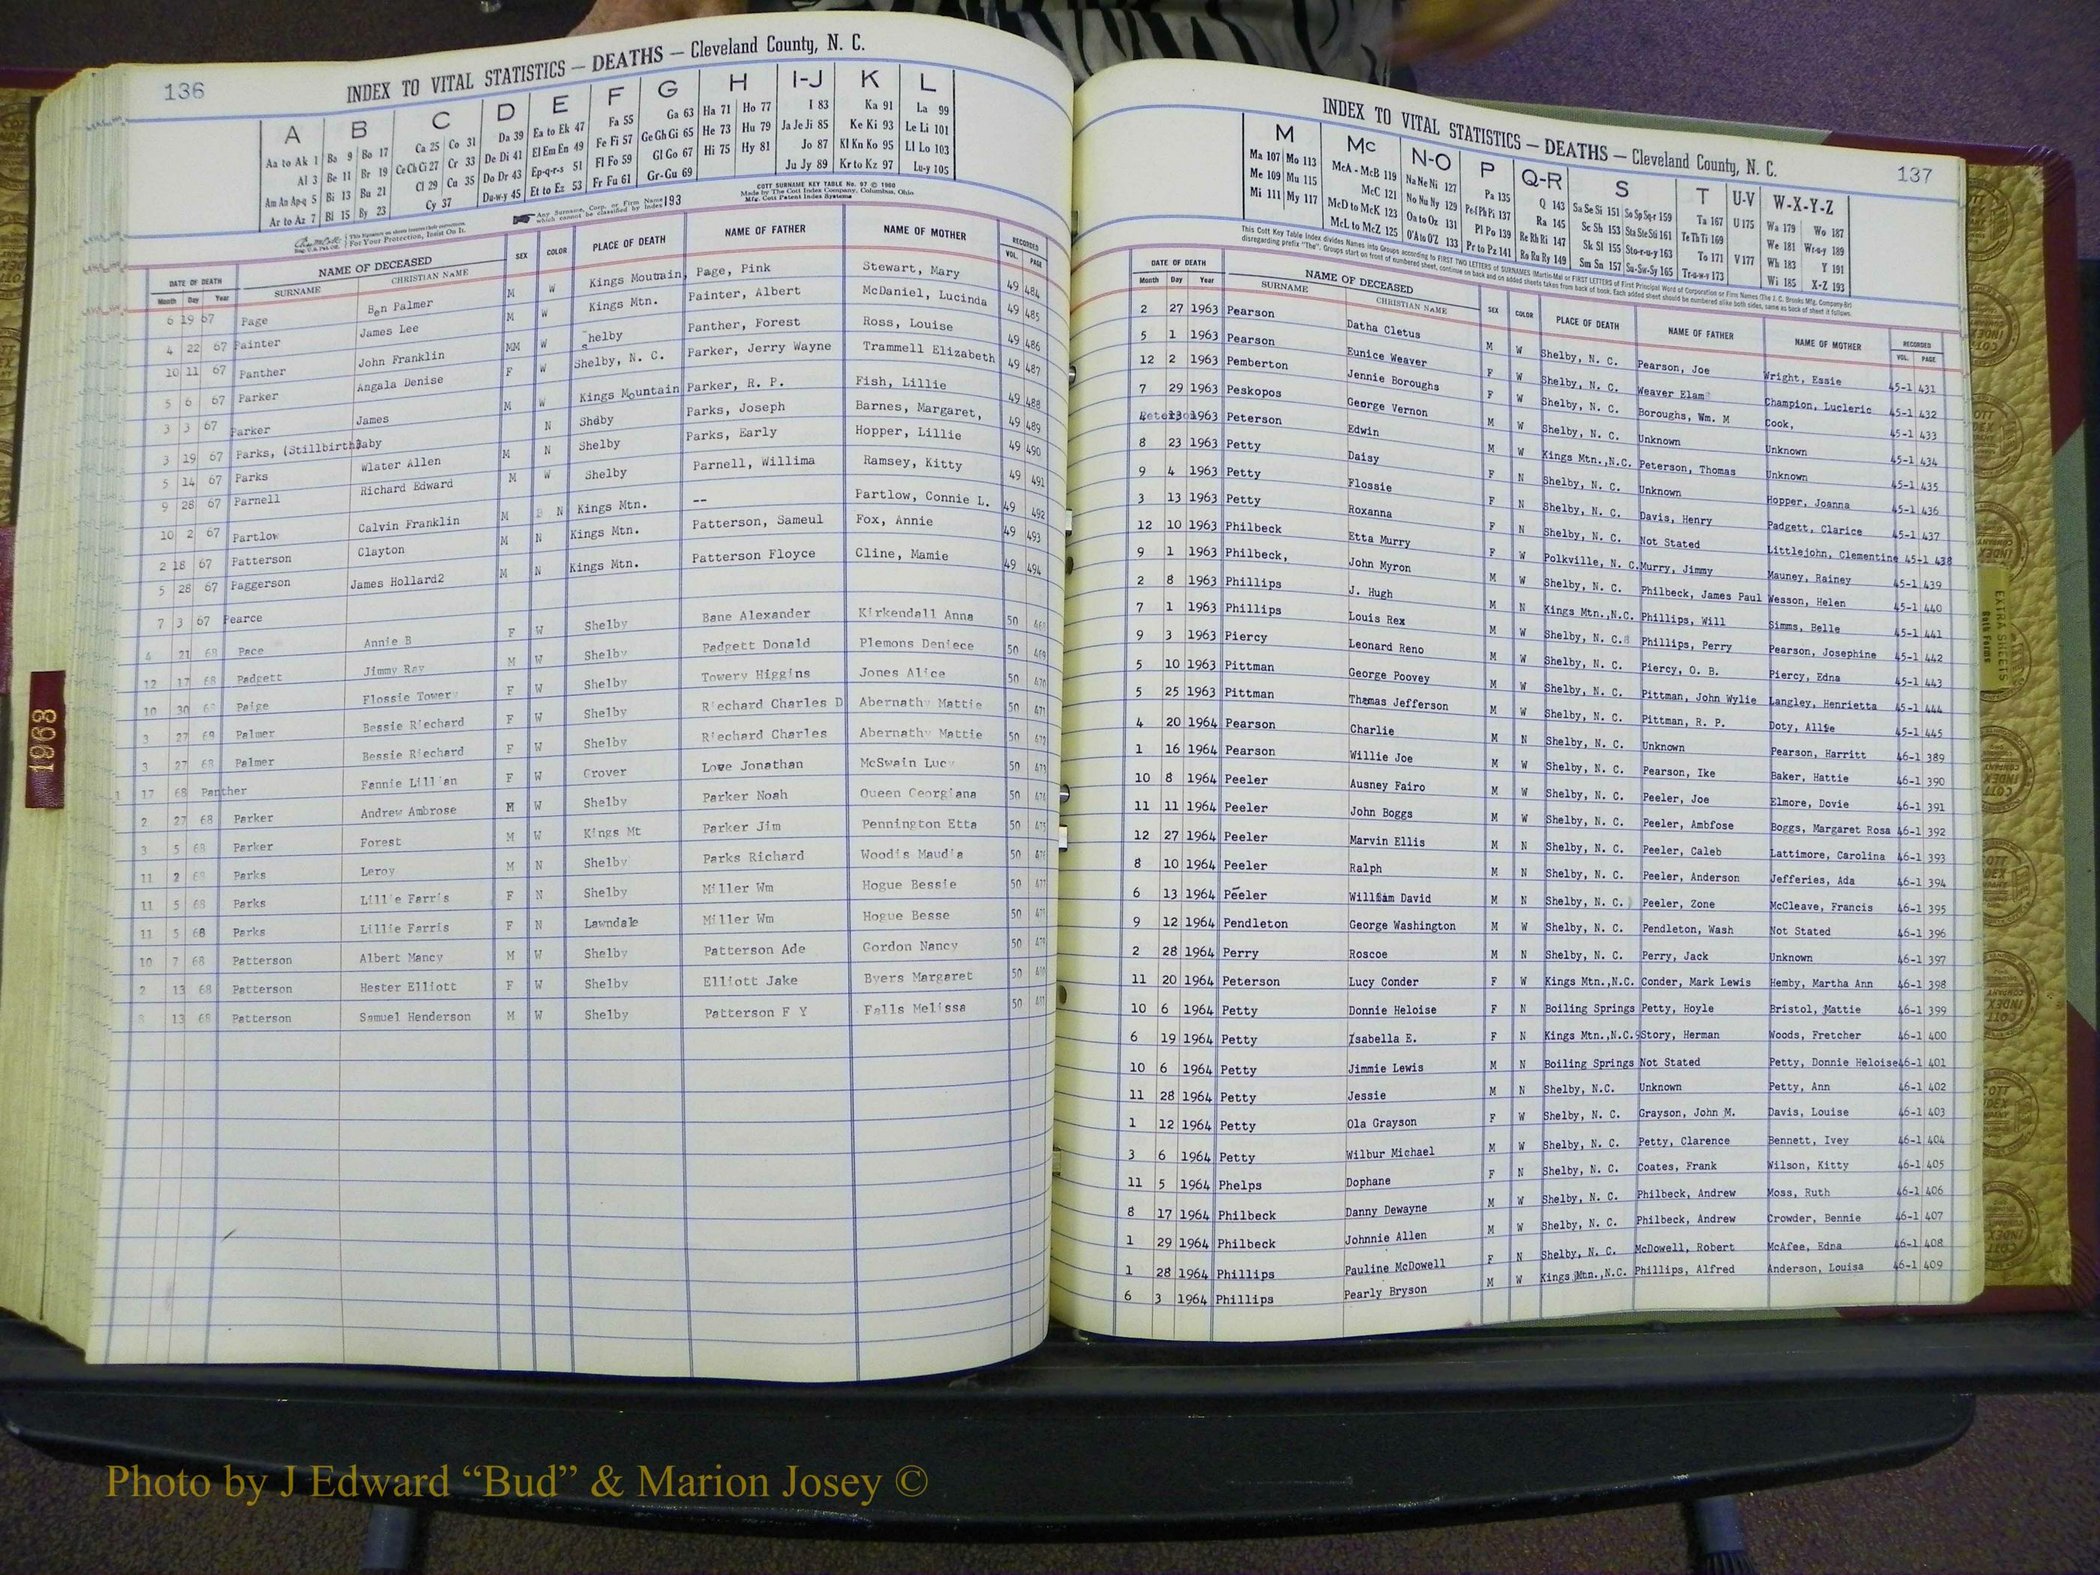 136
INDEX TO VITAL STATISTICS — DEATHS — Cleveland County, N. C.
A B C D E F G H I-J K L
Aa to Ak 1 Ba 9 Bo 17 Ca 25 Co 31 Da 39 Ea to Ek 47 Fa 55 Ga 63 Ha 71 Ho 77 I 83 Ka 91 La 99
Al 3 Be 11 Br 19 Ce Ch Ci 27 Cr 33 De Di 41 El Em En 49 Fe Fi 57 Ge Gh Gi 65 He 73 Hu 79 Ja Je Ji 85 Ke Ki 93 Le Li 101
Am An Ap-q 5 Bi 13 Bu 21 Cl 29 Cu 35 Do Dr 43 Ep-q-r-s 51 Fl Fo 59 Gl Go 67 Hi 75 Hy 81 Jo 87 Kl Kn Ko 95 Ll Lo 103
Ar to Az 7 Bl 15 By 23 Cy 37 Du-w-y 45 Et to Ez 53 Fr Fu 61 Gr-Gu 69 Ju Jy 89 Kr to Kz 97 Lu-y 105
COTT SURNAME KEY TABLE No. 97 © 1980
Made by The Cott Index Company, Columbus, Ohio
Mfg. Cott Patent Index Systems
Any Surname, Corp. or Firm Name which cannot be classified by Index 193
For Your Protection, Insist On It.
DATE OF DEATH NAME OF DECEASED SEX COLOR PLACE OF DEATH NAME OF FATHER NAME OF MOTHER RECORDED
Month Day Year SURNAME CHRISTIAN NAME VOL. PAGE
6 19 67 Page Ben Palmer M W Kings Moutnain, Page, Pink Stewart, Mary 49 484
4 22 67 Painter James Lee M W Kings Mtn. Painter, Albert McDaniel, Lucinda 49 485
10 11 67 Panther John Franklin MM W Shelby Panther, Forest Ross, Louise 49 486
5 6 67 Parker Angala Denise F W Shelby, N. C. Parker, Jerry Wayne Trammell Elizabeth 49 487
3 3 67 Parker James M W Kings Mountain Parker, R. P. Fish, Lillie 49 488
3 19 67 Parks, (Stillbirth) Baby N Shelby Parks, Joseph Barnes, Margaret, 49 489
5 14 67 Parks Wlater Allen M N Shelby Parks, Early Hopper, Lillie 49 490
9 28 67 Parnell Richard Edward M W Shelby Parnell, Willima Ramsey, Kitty 49 491
10 2 67 Partlow Calvin Franklin M N Kings Mtn. -- Partlow, Connie L. 49 492
2 18 67 Patterson Clayton M N Kings Mtn. Patterson, Sameul Fox, Annie 49 493
5 28 67 Paggerson James Hollard2 M N Kings Mtn. Patterson Floyce Cline, Mamie 49 494
7 3 67 Pearce
4 21 68 Pace Annie B F W Shelby Bane Alexander Kirkendall Anna 50 468
12 17 68 Padgett Jimmy Ray M W Shelby Padgett Donald Plemons Deniece 50 469
10 30 68 Paige Flossie Towery F W Shelby Towery Higgins Jones Alice 50 470
3 27 68 Palmer Bessie Riechard F W Shelby Riechard Charles D Abernathy Mattie 50 471
3 27 68 Palmer Bessie Riechard F W Shelby Riechard Charles Abernathy Mattie 50 472
1 17 68 Panther Fannie Lillian F W Grover Love Jonathan McSwain Lucy 50 473
2 27 68 Parker Andrew Ambrose M W Shelby Parker Noah Queen Georgiana 50 474
3 5 68 Parker Forest M W Kings Mt Parker Jim Pennington Etta 50 475
11 2 68 Parks Leroy M N Shelby Parks Richard Woodis Maudia 50 476
11 5 68 Parks Lillie Farris F N Shelby Miller Wm Hogue Bessie 50 477
11 5 68 Parks Lillie Farris F N Lawndale Miller Wm Hogue Besse 50 478
10 7 68 Patterson Albert Mancy M W Shelby Patterson Ade Gordon Nancy 50 479
2 13 68 Patterson Hester Elliott F W Shelby Elliott Jake Byers Margaret 50 480
8 13 68 Patterson Samuel Henderson M W Shelby Patterson F Y Falls Melissa 50 481
1968
137
INDEX TO VITAL STATISTICS — DEATHS — Cleveland County, N. C.
M Mc N-O P Q-R S T U-V W-X-Y-Z
Ma 107 Mo 113 McA - McB 119 Na Ne Ni 127 Pa 135 Q 143 Sa Se Si 151 So Sp Sq-r 159 Ta 167 U 175 Wa 179 Wo 187
Me 109 Mu 115 McC 121 No Nu Ny 129 Pe-f Ph Pi 137 Ra 145 Sc Sh 153 Sta Ste Sti 161 Te Th Ti 169 We 181 Wr-u-y 189
Mi 111 My 117 McD to McK 123 Oa to Oz 131 Pl Po 139 Re Rh Ri 147 Sk Sl 155 Sto-r-u-y 163 To 171 V 177 Wh 183 Y 191
McL to McZ 125 O'A to O'Z 133 Pr to Pz 141 Ro Ru Ry 149 Sm Sn 157 Su-Sw-Sy 165 Tr-u-w-y 173 Wi 185 X-Z 193
This Cott Key Table Index divides Names into Groups according to FIRST TWO LETTERS of SURNAMES (Martin-Ma) or FIRST LETTERS of First Principal Word of Corporation or Firm Names (The J. C. Brooks Mfg. Company-Br)
disregarding prefix "The". Groups start on front of numbered sheet, continue on back and on added sheets taken from back of book. Each added sheet should be numbered alike both sides, same as back of sheet it follows.
DATE OF DEATH NAME OF DECEASED SEX COLOR PLACE OF DEATH NAME OF FATHER NAME OF MOTHER RECORDED
Month Day Year SURNAME CHRISTIAN NAME VOL. PAGE
2 27 1963 Pearson Datha Cletus M W Shelby, N. C. Pearson, Joe Wright, Essie 45-1 431
5 1 1963 Pearson Eunice Weaver F W Shelby, N. C. Weaver Elam Champion, Lucleric 45-1 432
12 2 1963 Pemberton Jennie Boroughs F W Shelby, N. C. Boroughs, Wm. M Cook, 45-1 433
7 29 1963 Peskopos George Vernon M W Shelby, N. C. Unknown Unknown 45-1 434
4 13 1963 Peterson Edwin M W Kings Mtn.,N.C. Peterson, Thomas Unknown 45-1 435
8 23 1963 Petty Daisy F N Shelby, N. C. Unknown Hopper, Joanna 45-1 436
9 4 1963 Petty Flossie F N Shelby, N. C. Davis, Henry Padgett, Clarice 45-1 437
3 13 1963 Petty Roxanna F N Shelby, N. C. Not Stated Littlejohn, Clementine 45-1 438
12 10 1963 Philbeck Etta Murry F W Polkville, N. C. Murry, Jimmy Mauney, Rainey 45-1 439
9 1 1963 Philbeck, John Myron M W Shelby, N. C. Philbeck, James Paul Wesson, Helen 45-1 440
2 8 1963 Phillips J. Hugh M N Kings Mtn.,N.C. Phillips, Will Simms, Belle 45-1 441
7 1 1963 Phillips Louis Rex M W Shelby, N. C.8 Phillips, Perry Pearson, Josephine 45-1 442
9 3 1963 Piercy Leonard Reno M W Shelby, N. C. Piercy, O. B. Piercy, Edna 45-1 443
5 10 1963 Pittman George Poovey M W Shelby, N. C. Pittman, John Wylie Langley, Henrietta 45-1 444
5 25 1963 Pittman Thomas Jefferson M W Shelby, N. C. Pittman, R. P. Doty, Allie 45-1 445
4 20 1964 Pearson Charlie M N Shelby, N. C. Unknown Pearson, Harritt 46-1 389
1 16 1964 Pearson Willie Joe M W Shelby, N. C. Pearson, Ike Baker, Hattie 46-1 390
10 8 1964 Peeler Ausney Fairo M W Shelby, N. C. Peeler, Joe Elmore, Dovie 46-1 391
11 11 1964 Peeler John Boggs M W Shelby, N. C. Peeler, Ambfose Boggs, Margaret Rosa 46-1 392
12 27 1964 Peeler Marvin Ellis M N Shelby, N. C. Peeler, Caleb Lattimore, Carolina 46-1 393
8 10 1964 Peeler Ralph M N Shelby, N. C. Peeler, Anderson Jefferies, Ada 46-1 394
6 13 1964 Peeler William David M N Shelby, N. C. Peeler, Zone McCleave, Francis 46-1 395
9 12 1964 Pendleton George Washington M W Shelby, N. C. Pendleton, Wash Not Stated 46-1 396
2 28 1964 Perry Roscoe M N Shelby, N. C. Perry, Jack Unknown 46-1 397
11 20 1964 Peterson Lucy Conder F W Kings Mtn.,N.C. Conder, Mark Lewis Hemby, Martha Ann 46-1 398
10 6 1964 Petty Donnie Heloise F N Boiling Springs Petty, Hoyle Bristol, Mattie 46-1 399
6 19 1964 Petty Isabella E. F N Kings Mtn.,N.C. Story, Herman Woods, Fretcher 46-1 400
10 6 1964 Petty Jimmie Lewis M N Boiling Springs Not Stated Petty, Donnie Heloise 46-1 401
11 28 1964 Petty Jessie M N Shelby, N.C. Unknown Petty, Ann 46-1 402
1 12 1964 Petty Ola Grayson F W Shelby, N. C. Grayson, John M. Davis, Louise 46-1 403
3 6 1964 Petty Wilbur Michael M W Shelby, N. C. Petty, Clarence Bennett, Ivey 46-1 404
11 5 1964 Phelps Dophane F N Shelby, N. C. Coates, Frank Wilson, Kitty 46-1 405
8 17 1964 Philbeck Danny Dewayne M W Shelby, N. C. Philbeck, Andrew Moss, Ruth 46-1 406
1 29 1964 Philbeck Johnnie Allen M W Shelby, N. C. Philbeck, Andrew Crowder, Bennie 46-1 407
1 28 1964 Phillips Pauline McDowell F N Shelby, N. C. McDowell, Robert McAfee, Edna 46-1 408
6 3 1964 Phillips Pearly Bryson M W Kings Mtn.,N.C. Phillips, Alfred Anderson, Louisa 46-1 409
EXTRA SHEETS
Both Forms
Photo by J Edward “Bud” & Marion Josey ©